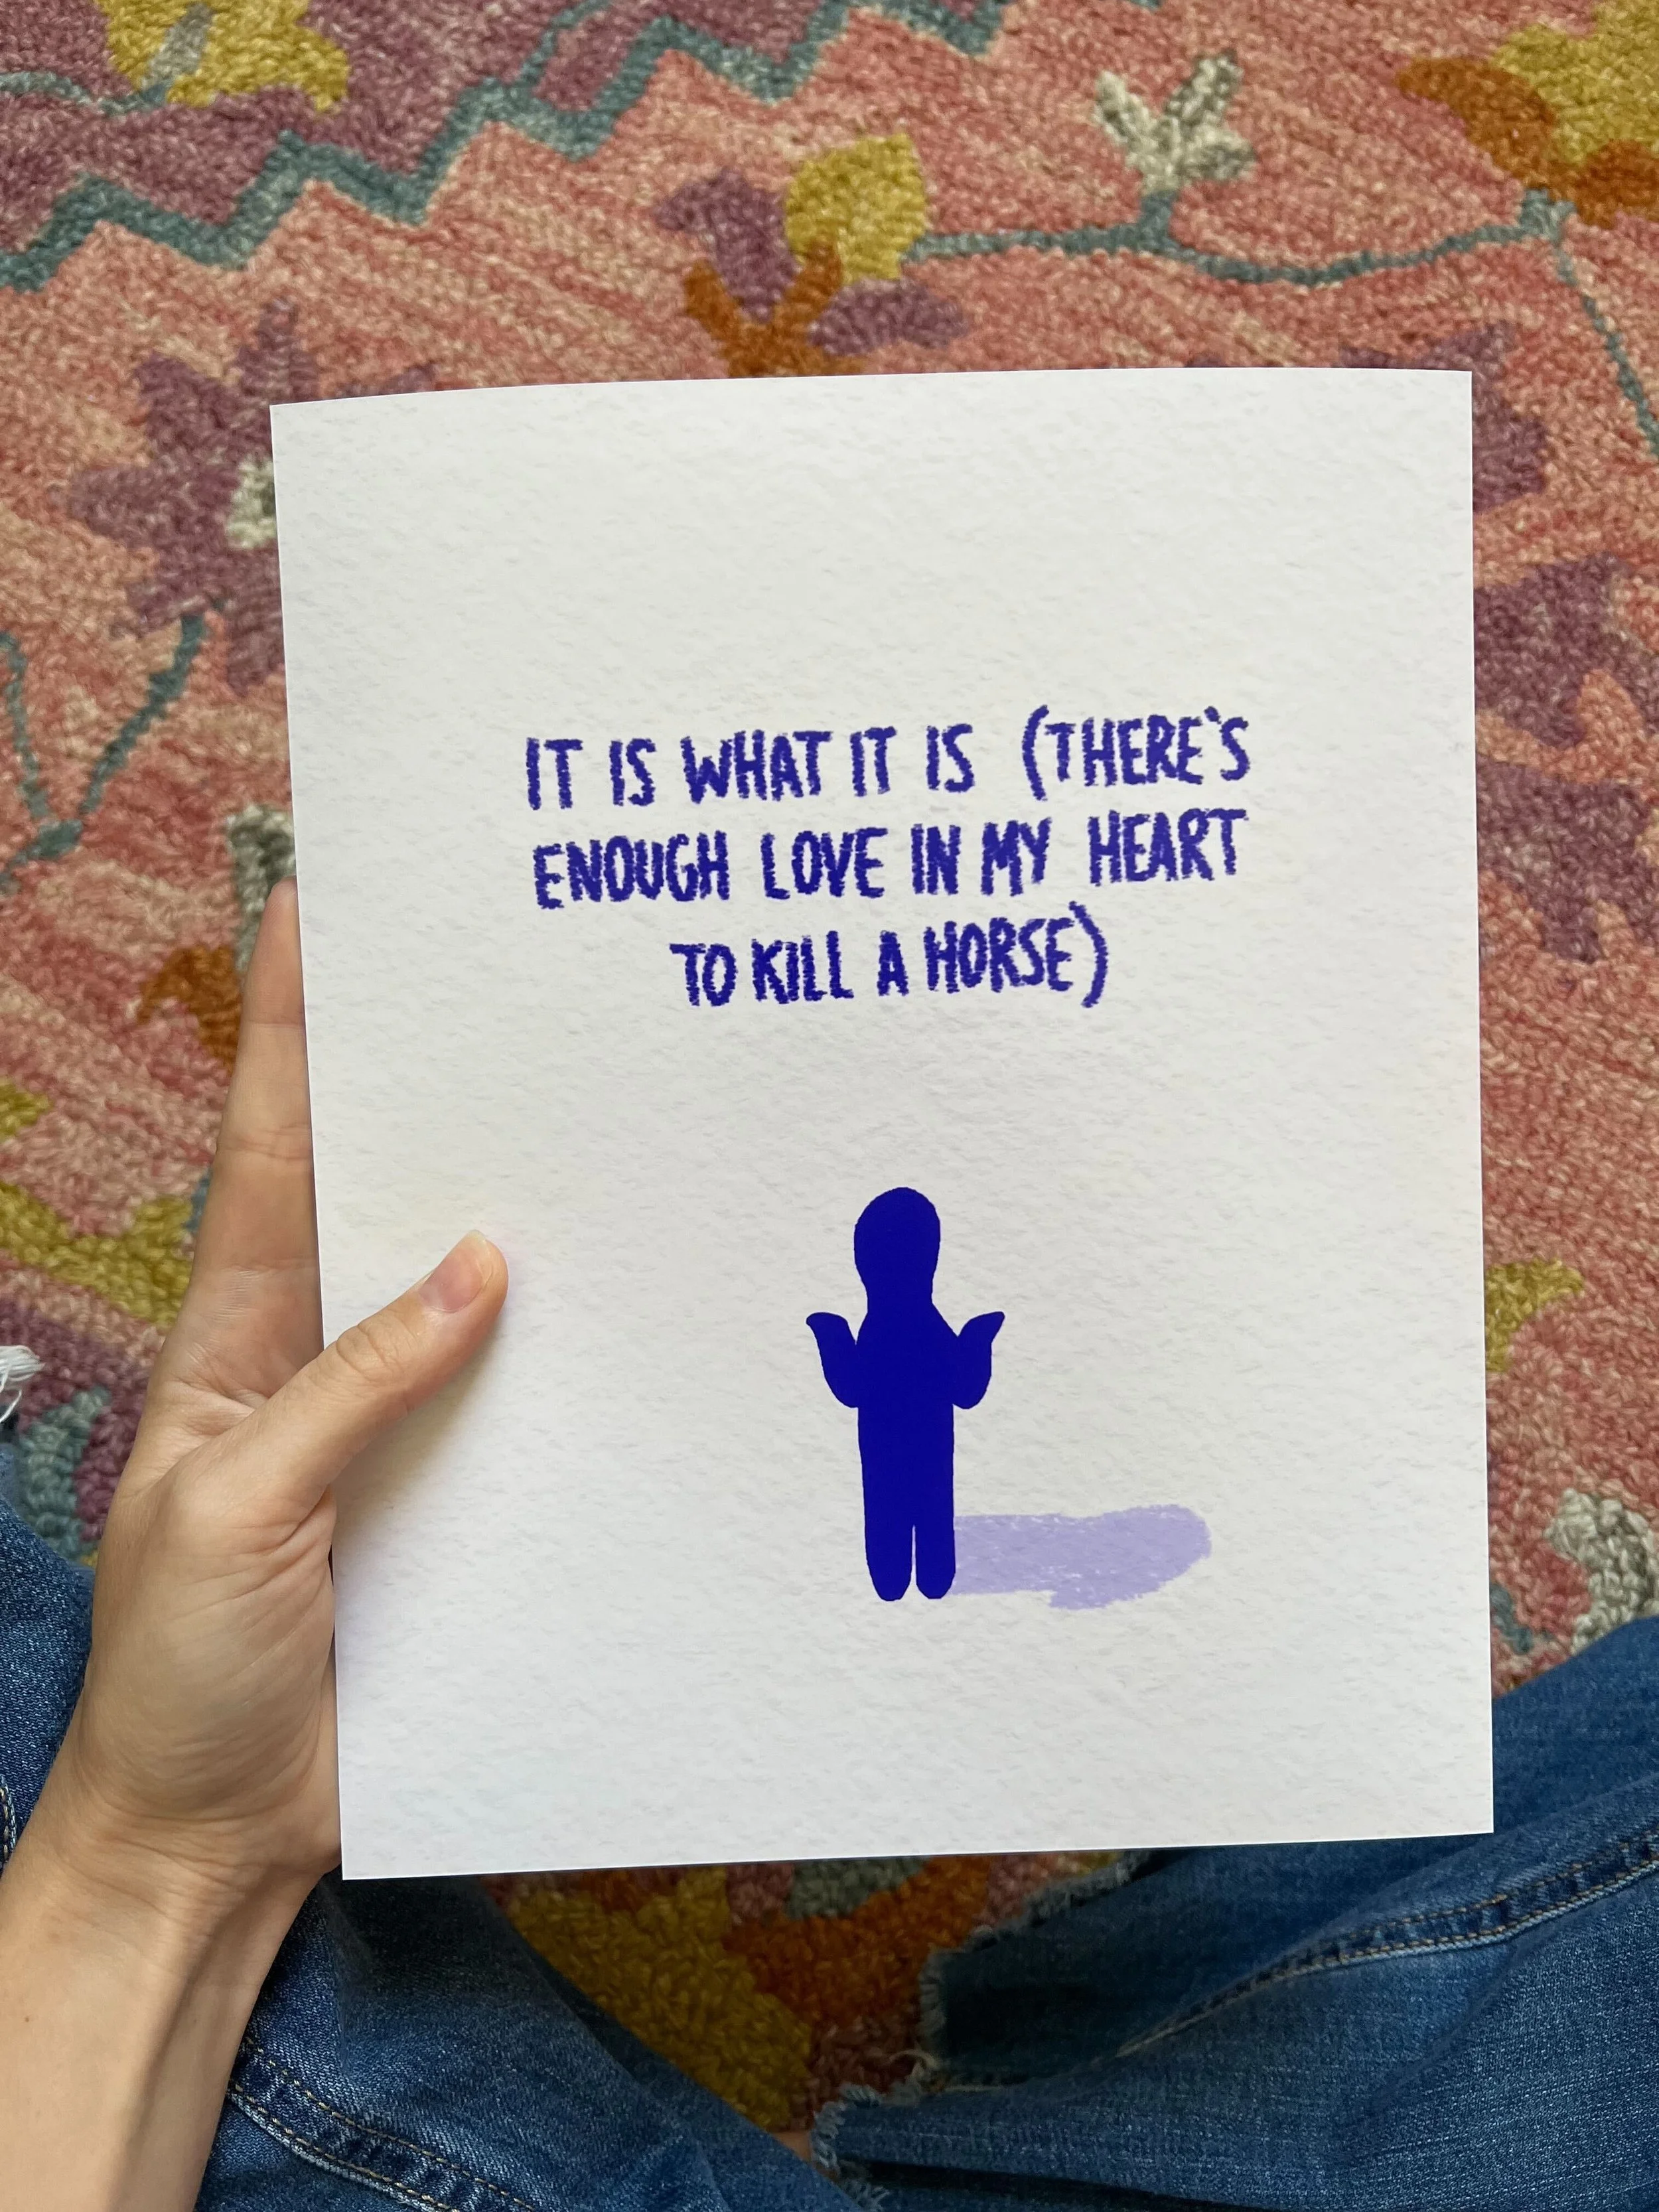 IT IS WHAT IT IS (THERE'S
ENOUGH LOVE IN MY HEART
TO KILL A HORSE)